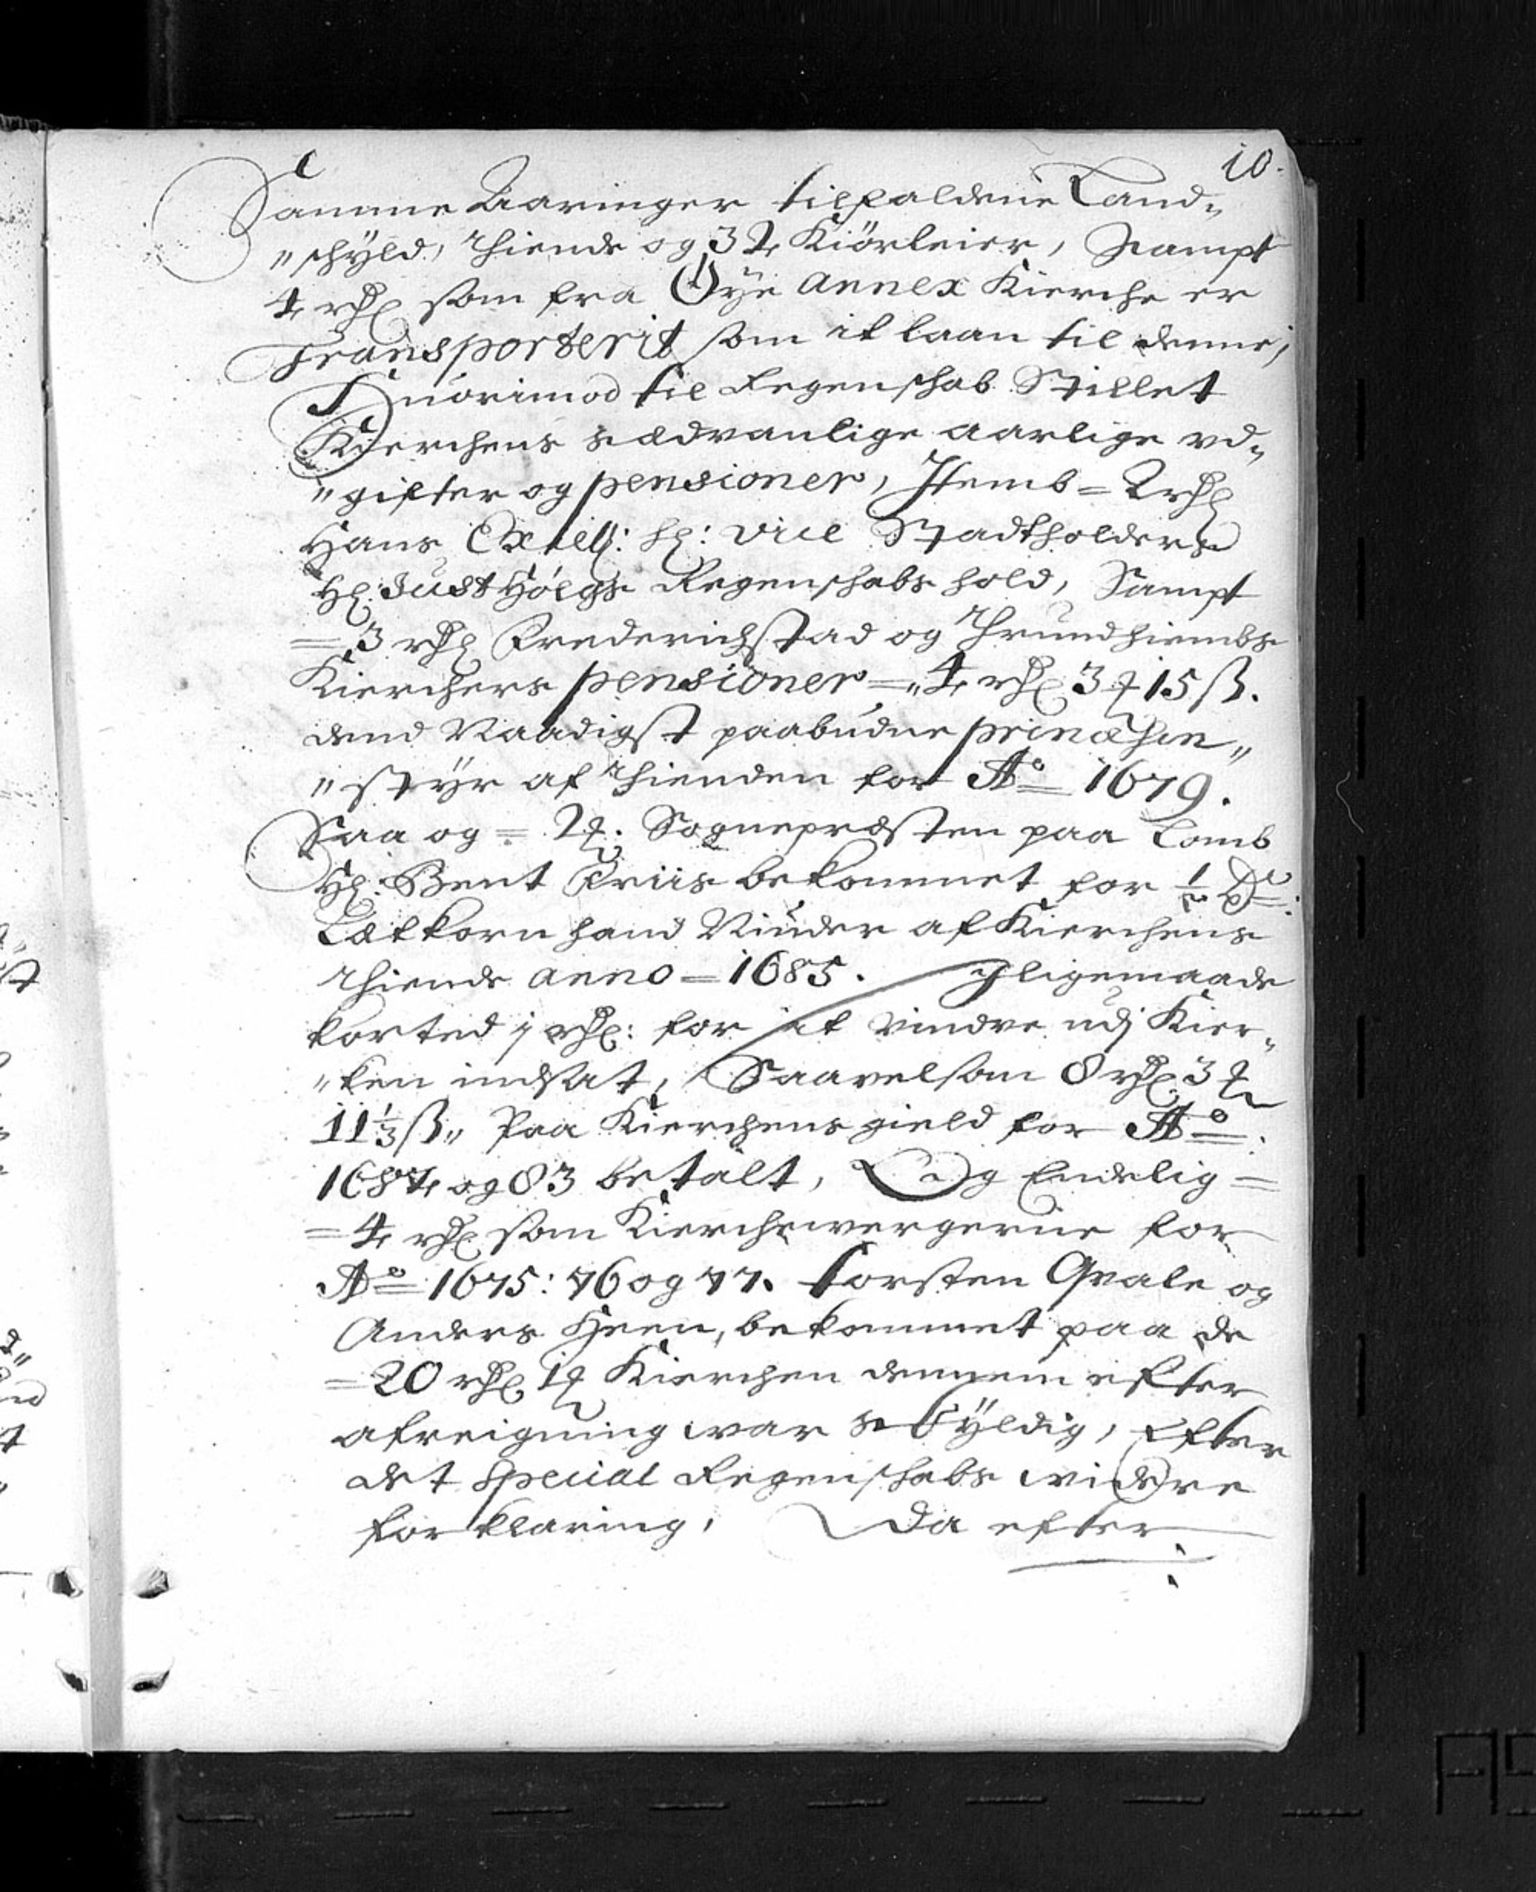 10.
Samme Aaringer tilfaldene Land„
„schÿld, Thiende og 3 Kiörleier, Sampt
4 rdr som fra Öye annex Kierche er
Transporterit som it laan til denne,
Huorimod til Regenschab Stillet
Kierchens sædvanlige aarlige vd„
„gifter og pensioner, Itemb = 2 rdr
Hans Excell: Hr: Vice Stadtholders
Hr: Just Høegs Regenschabs hold, Sampt
= 3 rdr Frederichstad og Thrundhiembs
Kierchers pensioner =„ 4 rdr 3 15 ß.
dend Naadigst paabudne princessin„
„styr af Thienden for Ao 1679.
Saa og = Sognepræsten paa Lomb
Hr: Bent Friis bekommet for ½
Tækorn hand Nÿder af Kierchens
Thiende anno = 1685. Jligemaade
korted j rdr: for it vindve udj Kier„
„ken indsat, Saavelsom 8 rdr 3
11⅓ ß„ Paa Kierchens gield for Ao
1682 og 83 betalt, Og Endelig =
= 4 rdr som Kierchewergerne for
Ao 1675: 76 og 77. Torsten Qvale og
Anders Heen, bekommet paa de
= 20 rdr 1 Kierchen dennem efter
afreigning war skÿldig, Efter
det Special Regenschabs widre
forklaring, Da efter